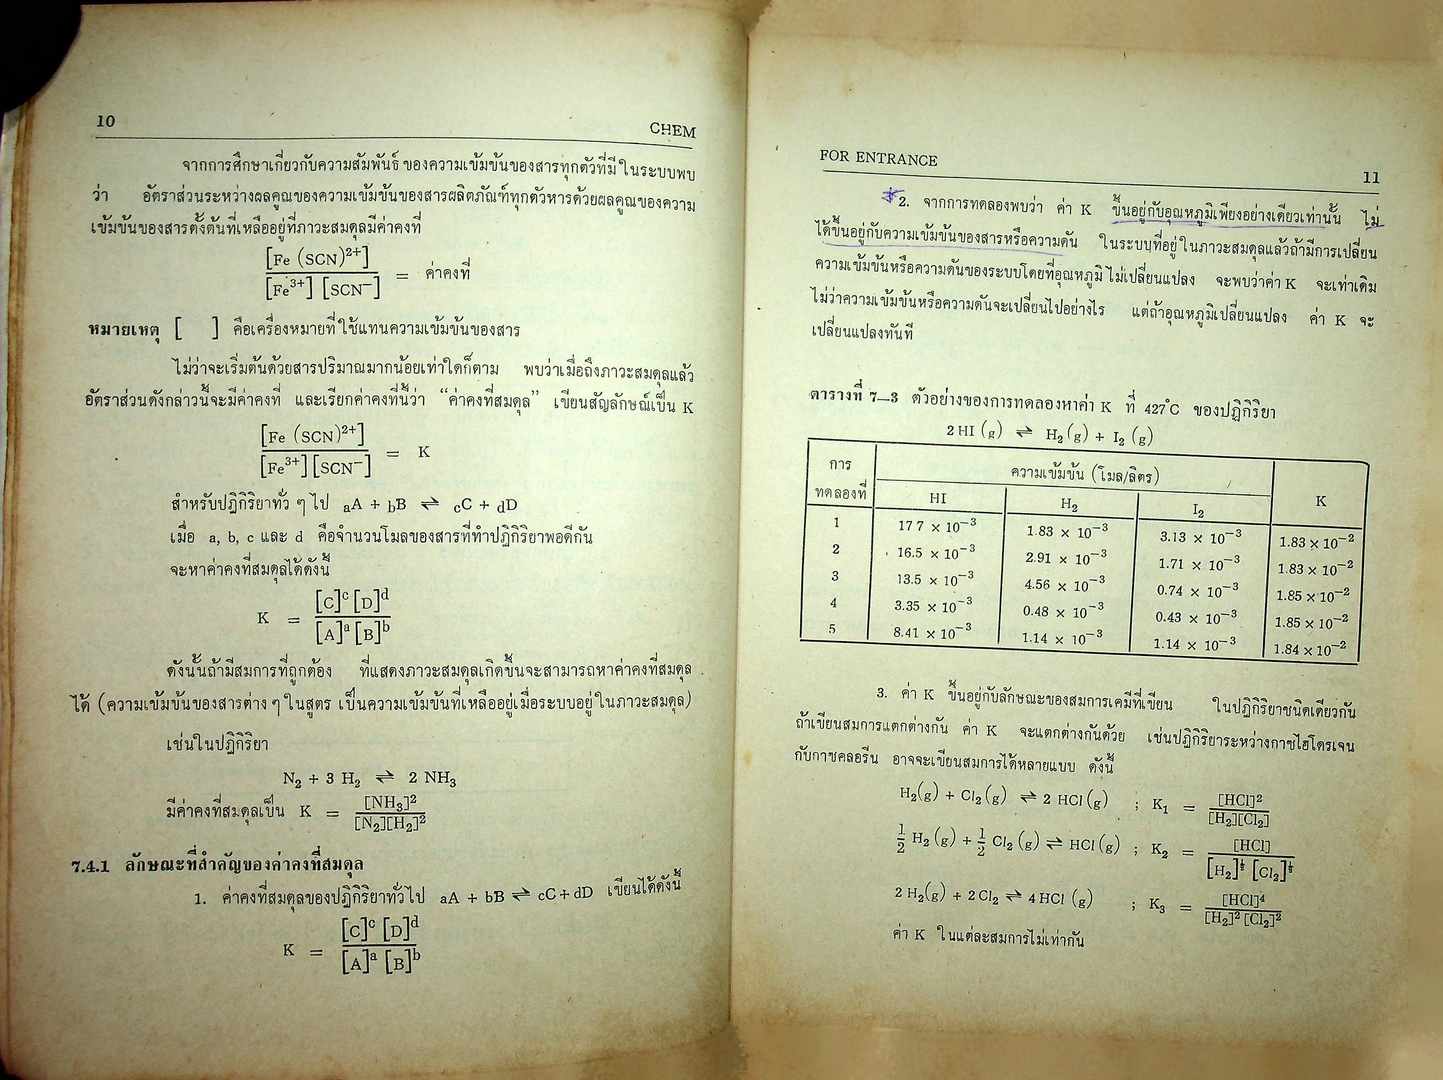 10
CHEM
จากการศึกษาเกี่ยวกับความสัมพันธ์ ของความเข้มข้นของสารทุกตัวที่มีในระบบพบ
ว่า อัตราส่วนระหว่างผลคูณของความเข้มข้นของสารผลิตภัณฑ์ทุกตัวหารด้วยผลคูณของความ
เข้มข้นของสารตั้งต้นที่เหลืออยู่ที่ภาวะสมดุลมีค่าคงที่
[Fe (SCN)²⁺] / [Fe³⁺] [SCN⁻] = ค่าคงที่
หมายเหตุ [ ] คือเครื่องหมายที่ใช้แทนความเข้มข้นของสาร
ไม่ว่าจะเริ่มต้นด้วยสารปริมาณมากน้อยเท่าใดก็ตาม พบว่าเมื่อถึงภาวะสมดุลแล้ว
อัตราส่วนดังกล่าวนี้จะมีค่าคงที่ และเรียกค่าคงที่นี้ว่า “ค่าคงที่สมดุล” เขียนสัญลักษณ์เป็น K
[Fe (SCN)²⁺] / [Fe³⁺] [SCN⁻] = K
สำหรับปฏิกิริยาทั่ว ๆ ไป aA + bB ⇌ cC + dD
เมื่อ a, b, c และ d คือจำนวนโมลของสารที่ทำปฏิกิริยาพอดีกัน
จะหาค่าคงที่สมดุลได้ดังนี้
K = [C]ᶜ [D]ᵈ / [A]ᵃ [B]ᵇ
ดังนั้นถ้ามีสมการที่ถูกต้อง ที่แสดงภาวะสมดุลเกิดขึ้นจะสามารถหาค่าคงที่สมดุล
ได้ (ความเข้มข้นของสารต่าง ๆ ในสูตร เป็นความเข้มข้นที่เหลืออยู่เมื่อระบบอยู่ในภาวะสมดุล)
เช่นในปฏิกิริยา
N₂ + 3 H₂ ⇌ 2 NH₃
มีค่าคงที่สมดุลเป็น K = [NH₃]² / [N₂][H₂]²
7.4.1 ลักษณะที่สำคัญของค่าคงที่สมดุล
1. ค่าคงที่สมดุลของปฏิกิริยาทั่วไป aA + bB ⇌ cC + dD เขียนได้ดังนี้
K = [C]ᶜ [D]ᵈ / [A]ᵃ [B]ᵇ
FOR ENTRANCE
11
*2. จากการทดลองพบว่า ค่า K ขึ้นอยู่กับอุณหภูมิเพียงอย่างเดียวเท่านั้น ไม่
ได้ขึ้นอยู่กับความเข้มข้นของสารหรือความดัน ในระบบที่อยู่ในภาวะสมดุลแล้วถ้ามีการเปลี่ยน
ความเข้มข้นหรือความดันของระบบโดยที่อุณหภูมิไม่เปลี่ยนแปลง จะพบว่าค่า K จะเท่าเดิม
ไม่ว่าความเข้มข้นหรือความดันจะเปลี่ยนไปอย่างไร แต่ถ้าอุณหภูมิเปลี่ยนแปลง ค่า K จะ
เปลี่ยนแปลงทันที
ตารางที่ 7—3 ตัวอย่างของการทดลองหาค่า K ที่ 427°C ของปฏิกิริยา
2 HI (g) ⇌ H₂ (g) + I₂ (g)
การ ความเข้มข้น (โมล/ลิตร) K
ทดลองที่ HI H₂ I₂
1 17 7 × 10⁻³ 1.83 × 10⁻³ 3.13 × 10⁻³ 1.83 × 10⁻²
2 16.5 × 10⁻³ 2.91 × 10⁻³ 1.71 × 10⁻³ 1.83 × 10⁻²
3 13.5 × 10⁻³ 4.56 × 10⁻³ 0.74 × 10⁻³ 1.85 × 10⁻²
4 3.35 × 10⁻³ 0.48 × 10⁻³ 0.43 × 10⁻³ 1.85 × 10⁻²
5 8.41 × 10⁻³ 1.14 × 10⁻³ 1.14 × 10⁻³ 1.84 × 10⁻²
3. ค่า K ขึ้นอยู่กับลักษณะของสมการเคมีที่เขียน ในปฏิกิริยาชนิดเดียวกัน
ถ้าเขียนสมการแตกต่างกัน ค่า K จะแตกต่างกันด้วย เช่นปฏิกิริยาระหว่างกาซไฮโดรเจน
กับกาซคลอรีน อาจจะเขียนสมการได้หลายแบบ ดังนี้
H₂(g) + Cl₂(g) ⇌ 2 HCl(g) ; K₁ = [HCl]² / [H₂][Cl₂]
½ H₂(g) + ½ Cl₂(g) ⇌ HCl(g) ; K₂ = [HCl] / [H₂]^½ [Cl₂]^½
2 H₂(g) + 2 Cl₂ ⇌ 4 HCl (g) ; K₃ = [HCl]⁴ / [H₂]² [Cl₂]²
ค่า K ในแต่ละสมการไม่เท่ากัน